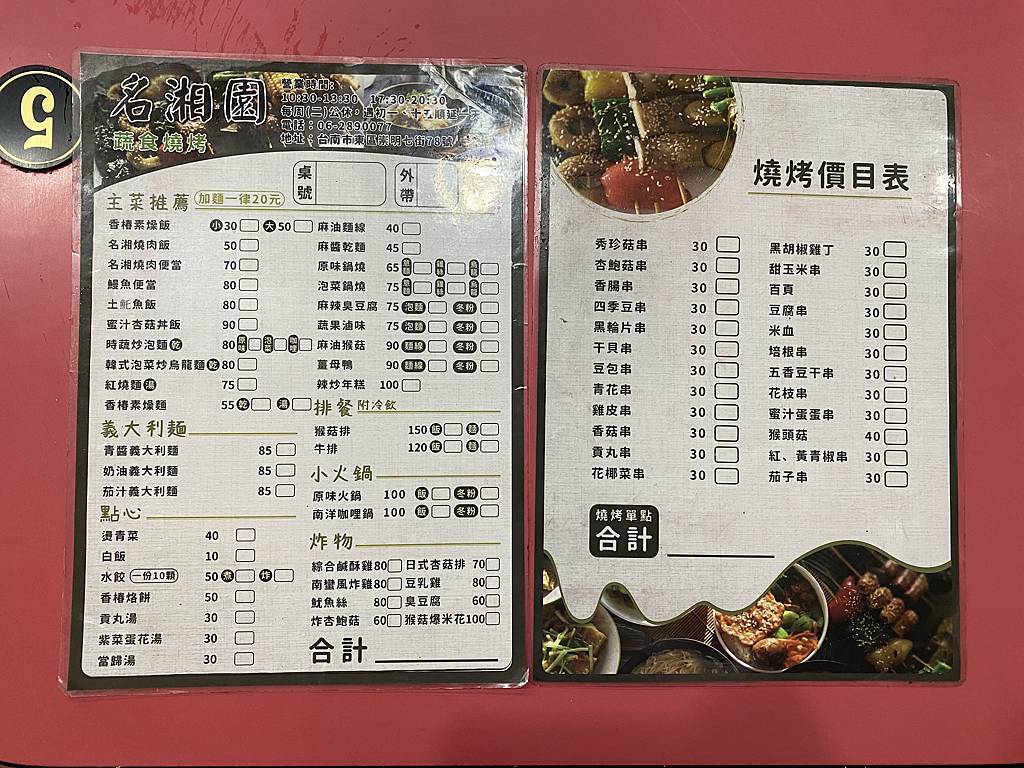 5
名湘園
蔬食燒烤
營業時間:
10:30-13:30、17:30-20:30
每周(二)公休,遇初一、十五順延一天
電話:06-2890077
地址:台南市東區崇明七街78號
桌號
外帶
主菜推薦 加麵一律20元
香椿素燥飯 小30 大50
名湘燒肉飯 50
名湘燒肉便當 70
鰻魚便當 80
土魠魚飯 80
蜜汁杏菇丼飯 90
時蔬炒泡麵 乾 80 原味 泡菜 咖哩
韓式泡菜炒烏龍麵 乾 80
紅燒麵 湯 75
香椿素燥麵 55 乾 湯
麻油麵線 40
麻醬乾麵 45
原味鍋燒 65
泡菜鍋燒 75
麻辣臭豆腐 75 泡麵 冬粉
蔬果滷味 75 泡麵 冬粉
麻油猴菇 90 麵線 冬粉
薑母鴨 90 麵線 冬粉
辣炒年糕 100
義大利麵
青醬義大利麵 85
奶油義大利麵 85
茄汁義大利麵 85
點心
燙青菜 40
白飯 10
水餃 一份10顆 50 煮 炸
香椿烙餅 50
貢丸湯 30
紫菜蛋花湯 30
當歸湯 30
排餐 附冷飲
猴菇排 150 飯 麵
牛排 120 飯 麵
小火鍋
原味火鍋 100 飯 冬粉
南洋咖哩鍋 100 飯 冬粉
炸物
綜合鹹酥雞 80 日式杏菇排 70
南蠻風炸雞 80 豆乳雞 80
魷魚絲 80 臭豆腐 60
炸杏鮑菇 60 猴菇爆米花 100
合計
燒烤價目表
秀珍菇串 30
杏鮑菇串 30
香腸串 30
四季豆串 30
黑輪片串 30
干貝串 30
豆包串 30
青花串 30
雞皮串 30
香菇串 30
貢丸串 30
花椰菜串 30
黑胡椒雞丁 30
甜玉米串 30
百頁 30
豆腐串 30
米血 30
培根串 30
五香豆干串 30
花枝串 30
蜜汁蛋蛋串 30
猴頭菇 40
紅、黃青椒串 30
茄子串 30
燒烤單點
合計